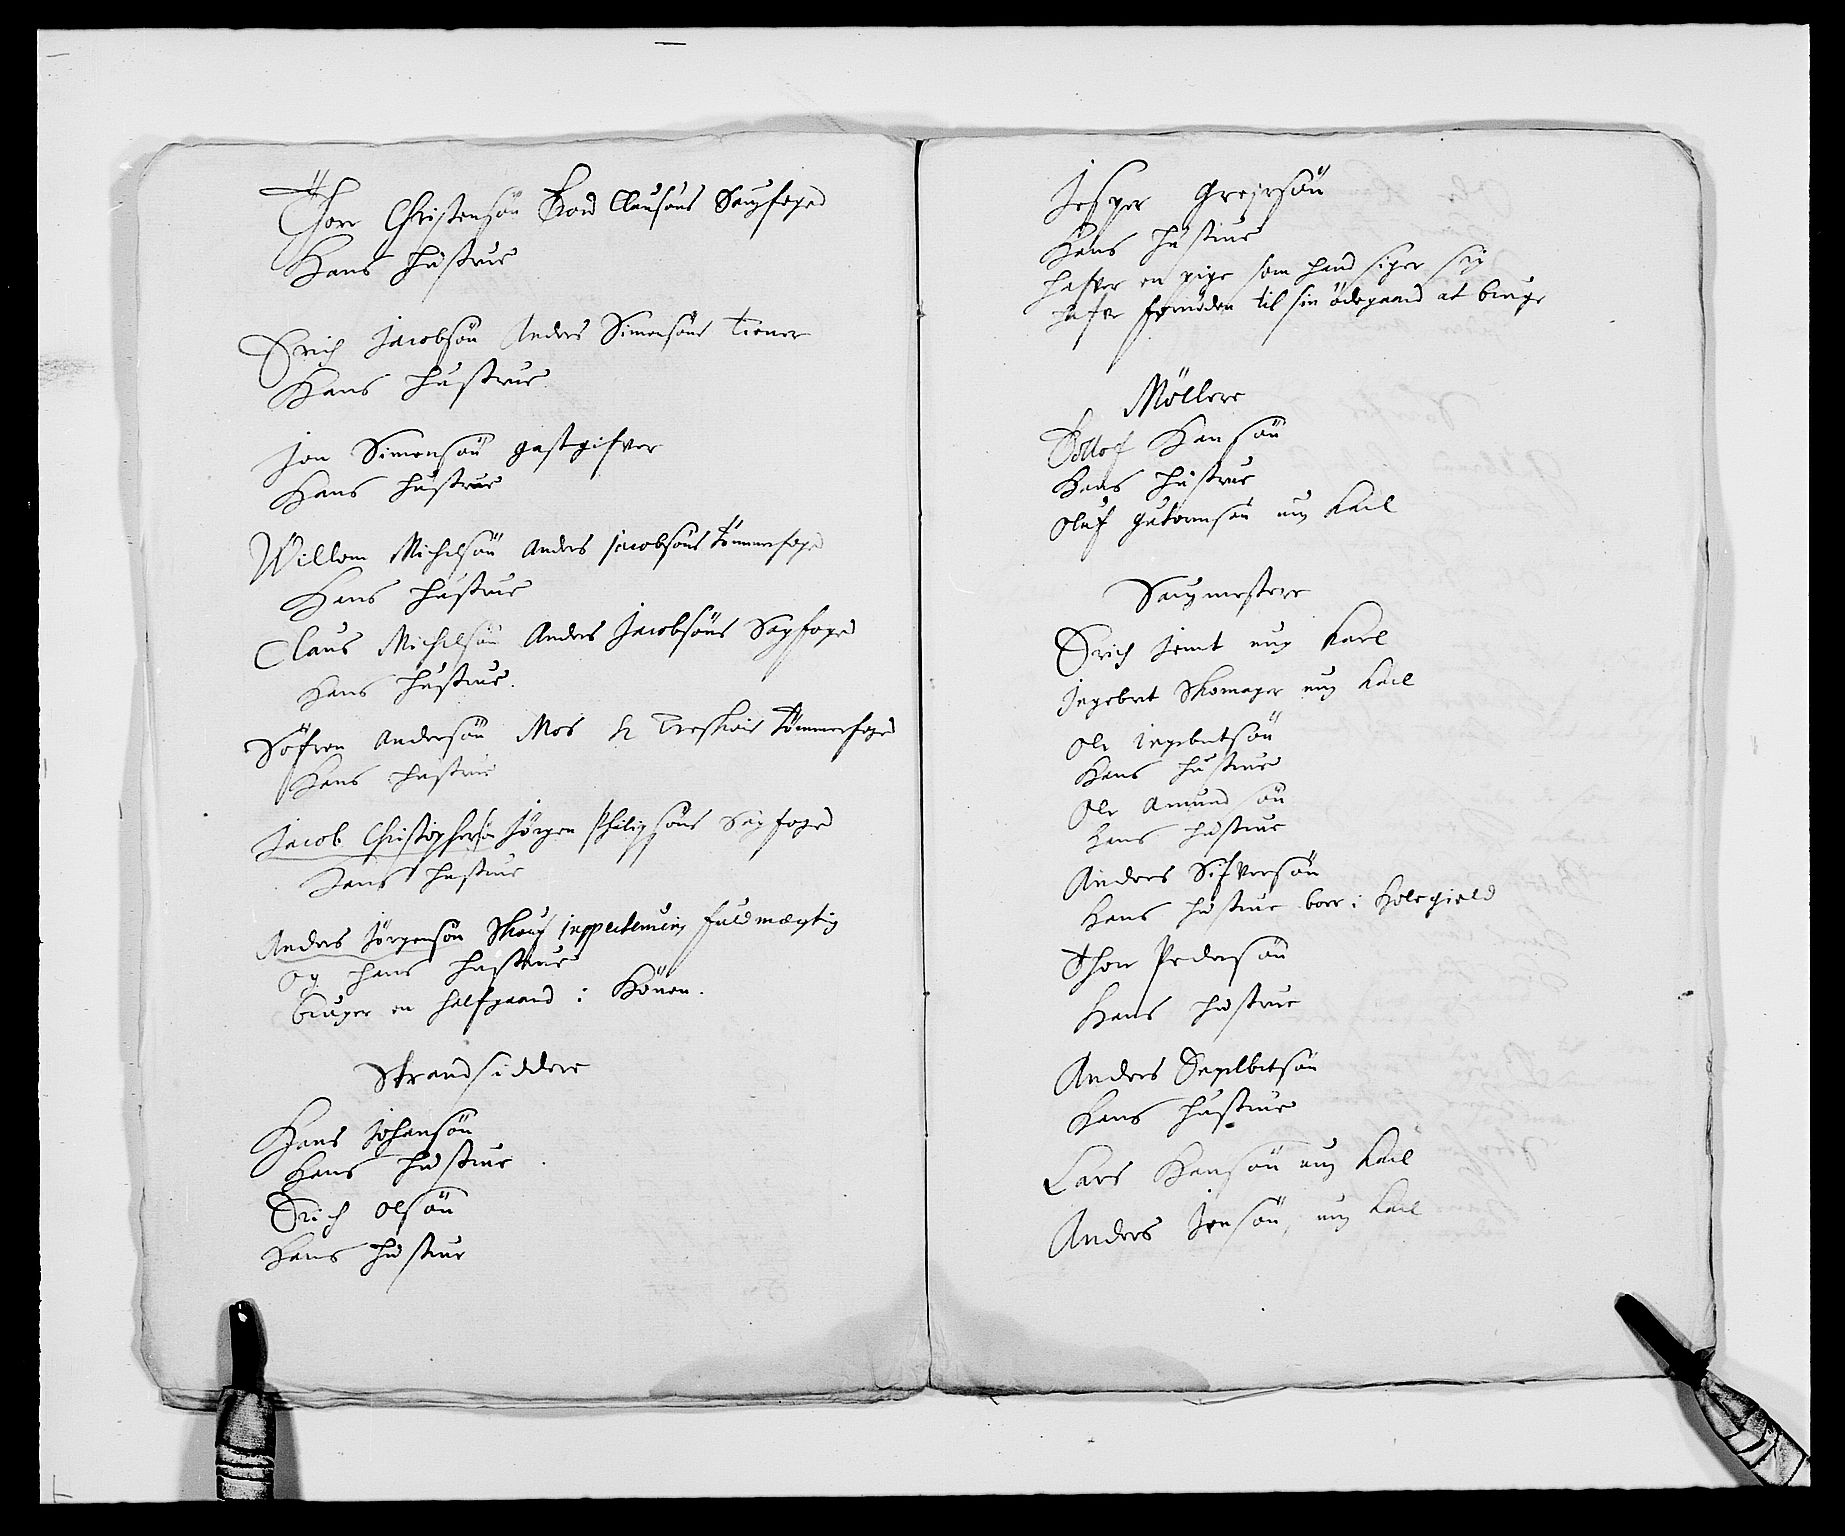 Thore Christensön Bord Clausöns Saugfoged
Hans hustrue
Erich Jacobsön Anders Simensöns tiener
Hans hustrue
Jon Simensön gastgifver
Hans hustrue
Willom Michelsön Anders Jacobsöns Tömmerfoged
Hans hustrue
Claus Michelsön Anders Jacobsöns Sagfoged
Hans hustrue
Söfren Andersön Mos Tömmerfoged
Hans hustrue
Jacob Christophersön Jörgen Philipsöns Sagfoged
Hans hustrue
Anders Jörgensön fuldmægtig
Og hans hustrue
bruger en halfgaard i
Strandsiddere
Hans Johansön
Hans hustrue
Erich Olsön
Hans hustrue
Jesper Grejersön
Hans hustrue
hafver en pige som hand siger sig
hafve fornöden til sin ödegaard at bruge
Möllere
Hansön
Hans hustrue
Oluf Gutormsön ung karl
Saugmestere
Erich Jemt ung karl
Ingebret Skomager ung karl
Ole Ingebretsön
Hans hustrue
Ole Amundsön
Hans hustrue
Anders Sifversön
Hans hustrue boer i
Thore Pedersön
Hans hustrue
Anders Engelbretsön
Hans hustrue
Lars Hansön ung karl
Anders Jensön, ung karl